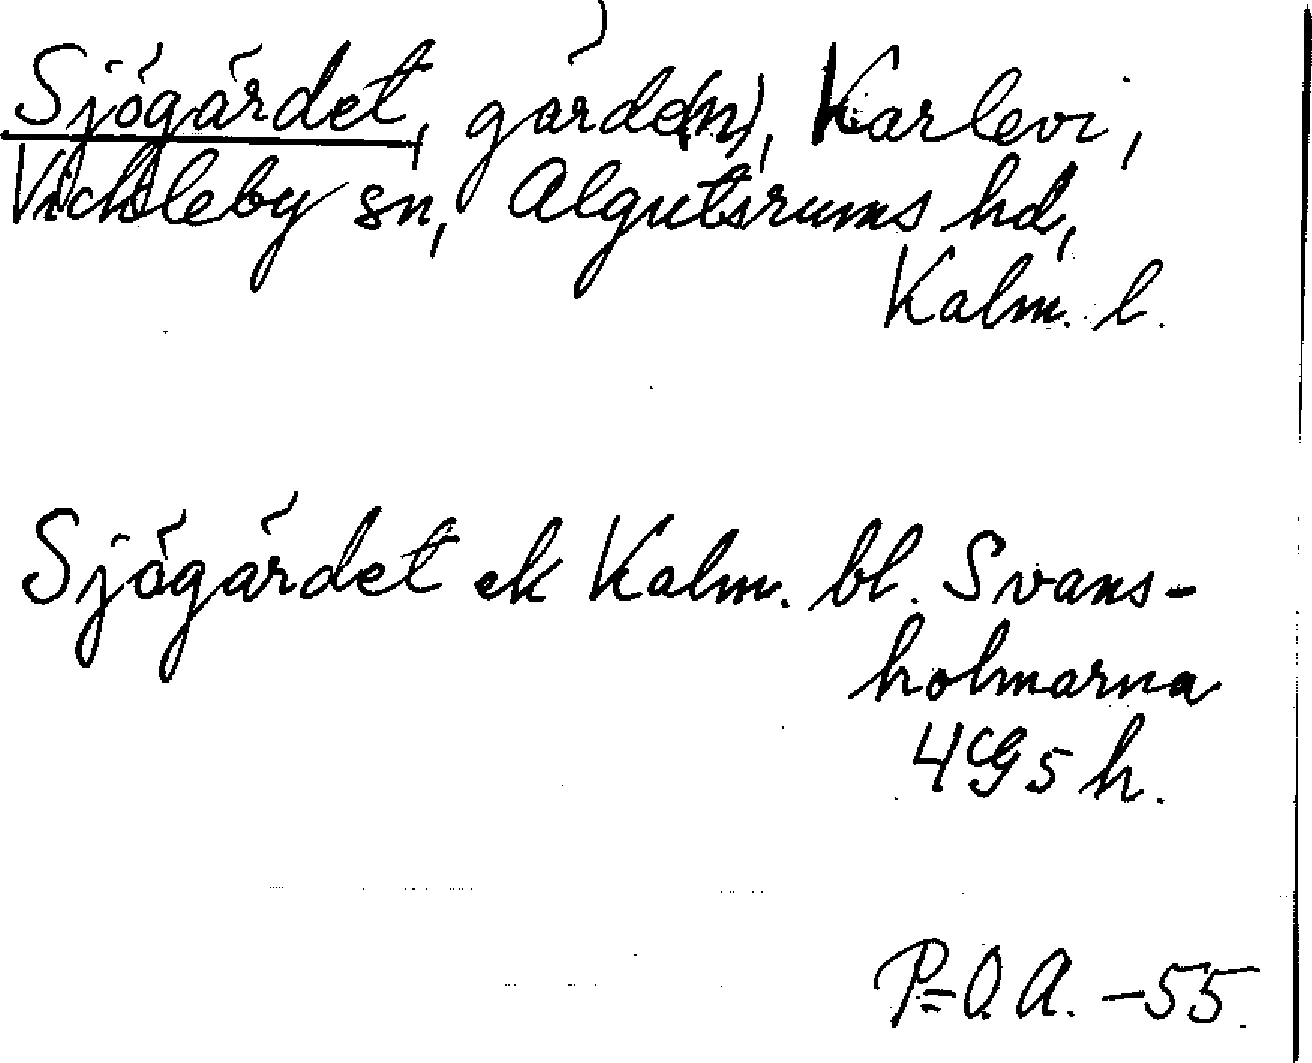 Sjögärdet, gärde(n), Karlevi,
Vickleby sn, Algutsrums hd,
Kalm. l.
Sjögärdet ek Kalm. bl. Svans-
holmarna
4G5h.
P-O. A. -55.